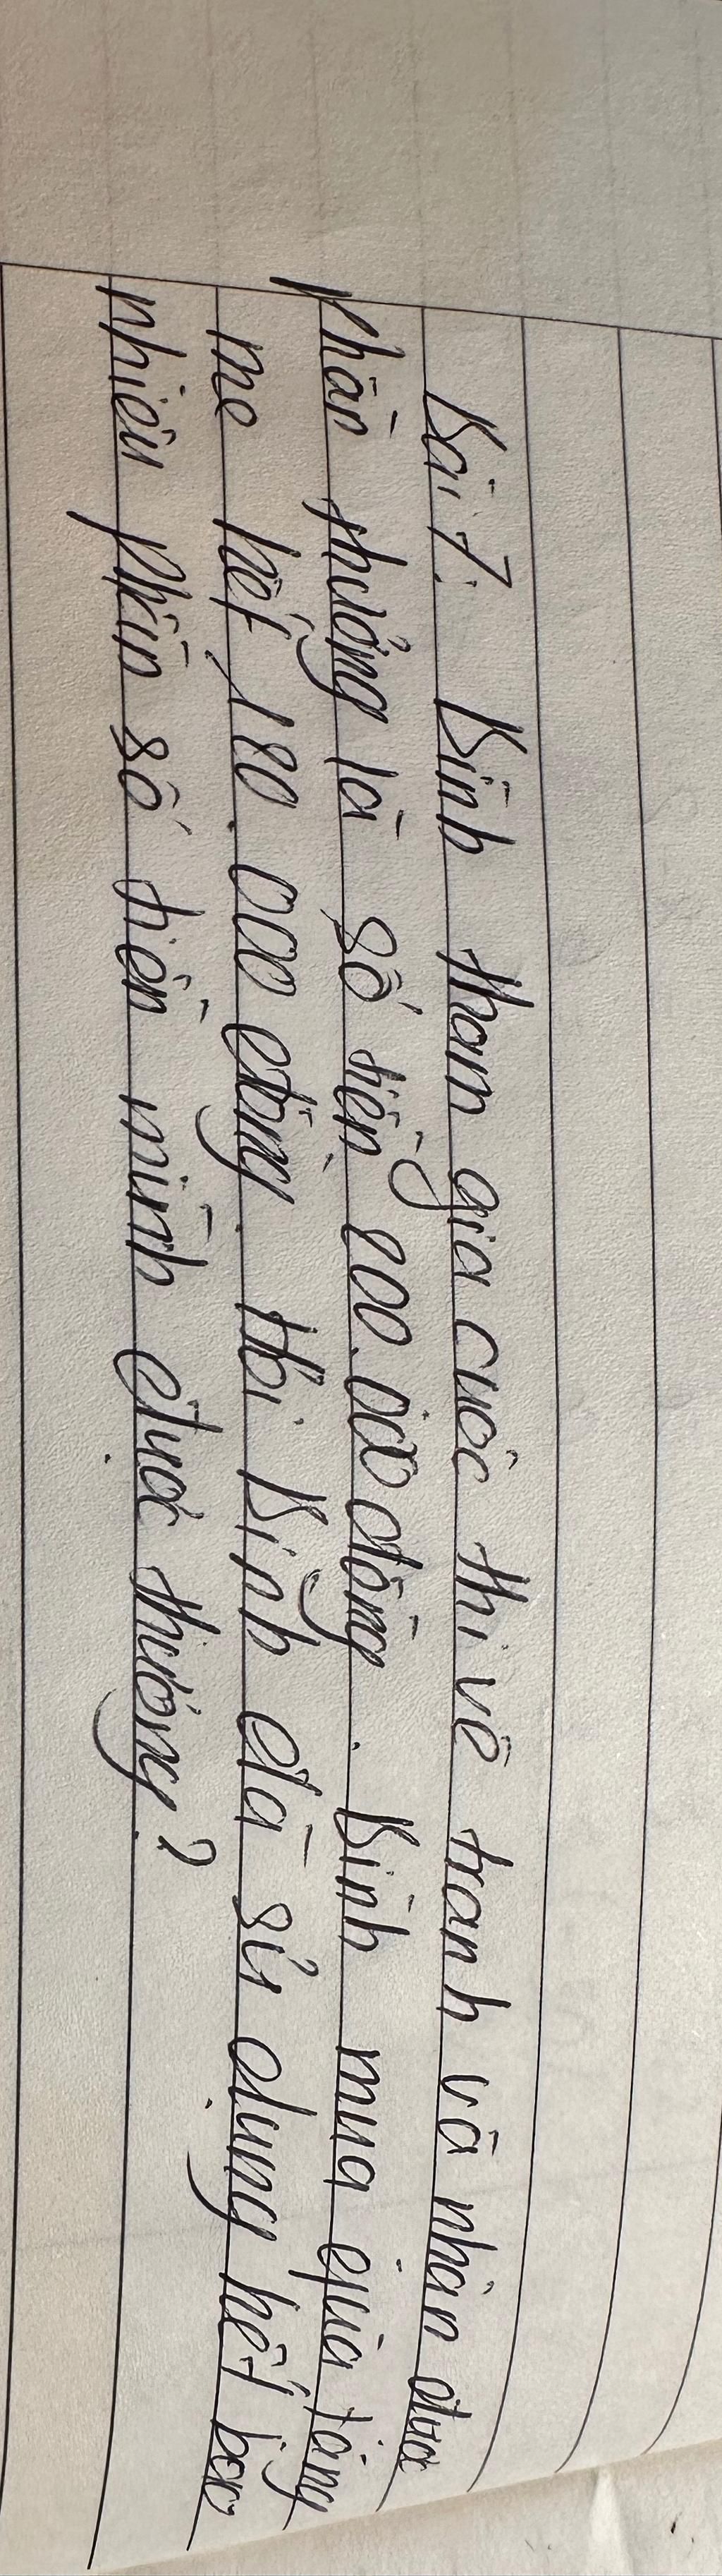 Bài 7: Bình tham gia cuộc thi vẽ tranh và nhận được
phần thưởng là số tiền 200.000 đồng. Bình mua quà tặng
mẹ hết 180.000 đồng. Hỏi Bình đã sử dụng hết bao
nhiêu phần số tiền mình được thưởng?